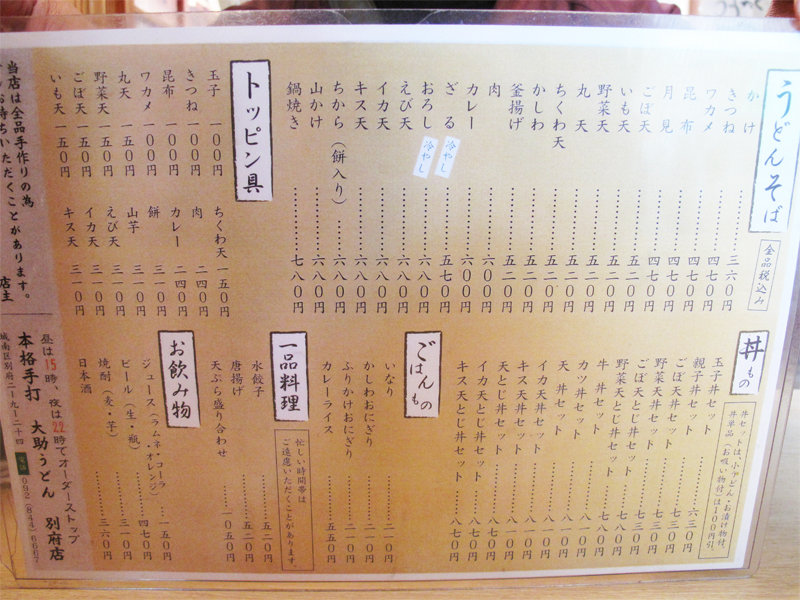 うどんそば
全品税込み
かけ……三六〇円
きつね……四七〇円
ワカメ……四七〇円
昆布……四七〇円
月見……四七〇円
ごぼ天……五二〇円
いも天……五二〇円
野菜天……五二〇円
丸天……五二〇円
ちくわ天……五二〇円
かしわ……五二〇円
釜揚げ……五二〇円
肉……六〇〇円
カレー……六〇〇円
ざる 冷やし……五七〇円
おろし 冷やし……六八〇円
えび天……六八〇円
イカ天……六八〇円
キス天……六八〇円
ちから（餅入り）……六八〇円
山かけ……六八〇円
鍋焼き……七八〇円
トッピン具
玉子 一〇〇円
きつね 一〇〇円
昆布 一〇〇円
ワカメ 一〇〇円
丸天 一五〇円
野菜天 一五〇円
ごぼ天 一五〇円
いも天 一五〇円
ちくわ天 一五〇円
肉 二四〇円
カレー 二四〇円
餅 三一〇円
山芋 三一〇円
えび天 三一〇円
イカ天 三一〇円
キス天 三一〇円
丼もの
丼セットは、小うどん・お漬け物付。
丼単品（お吸い物付）は一〇〇円引。
玉子丼セット……六三〇円
親子丼セット……七三〇円
ごぼ天丼セット……七三〇円
野菜天丼セット……七三〇円
ごぼ天とじ丼セット……七八〇円
野菜天とじ丼セット……七八〇円
牛丼セット……七八〇円
カツ丼セット……八一〇円
天丼セット……八一〇円
イカ天丼セット……八一〇円
キス天丼セット……八一〇円
天とじ丼セット……八七〇円
イカ天とじ丼セット……八七〇円
キス天とじ丼セット……八七〇円
ごはんもの
いなり……二一〇円
かしわおにぎり……二一〇円
ふりかけおにぎり……二一〇円
カレーライス……五五〇円
一品料理
忙しい時間帯は
ご遠慮いただくことがあります。
水餃子……五二〇円
唐揚げ……五二〇円
天ぷら盛り合わせ……一〇五〇円
お飲み物
ジュース（ラムネ・コーラ・オレンジ）……一五〇円
ビール（生・瓶）……四七〇円
焼酎（麦・芋）……三一〇円
日本酒……三六〇円
当店は全品手作りの為
お待ちいただくことがあります。 店主
昼は15時、夜は22時でオーダーストップ
本格手打 大助うどん 別府店
城南区別府二-九-二十四 電話 092(844)6667